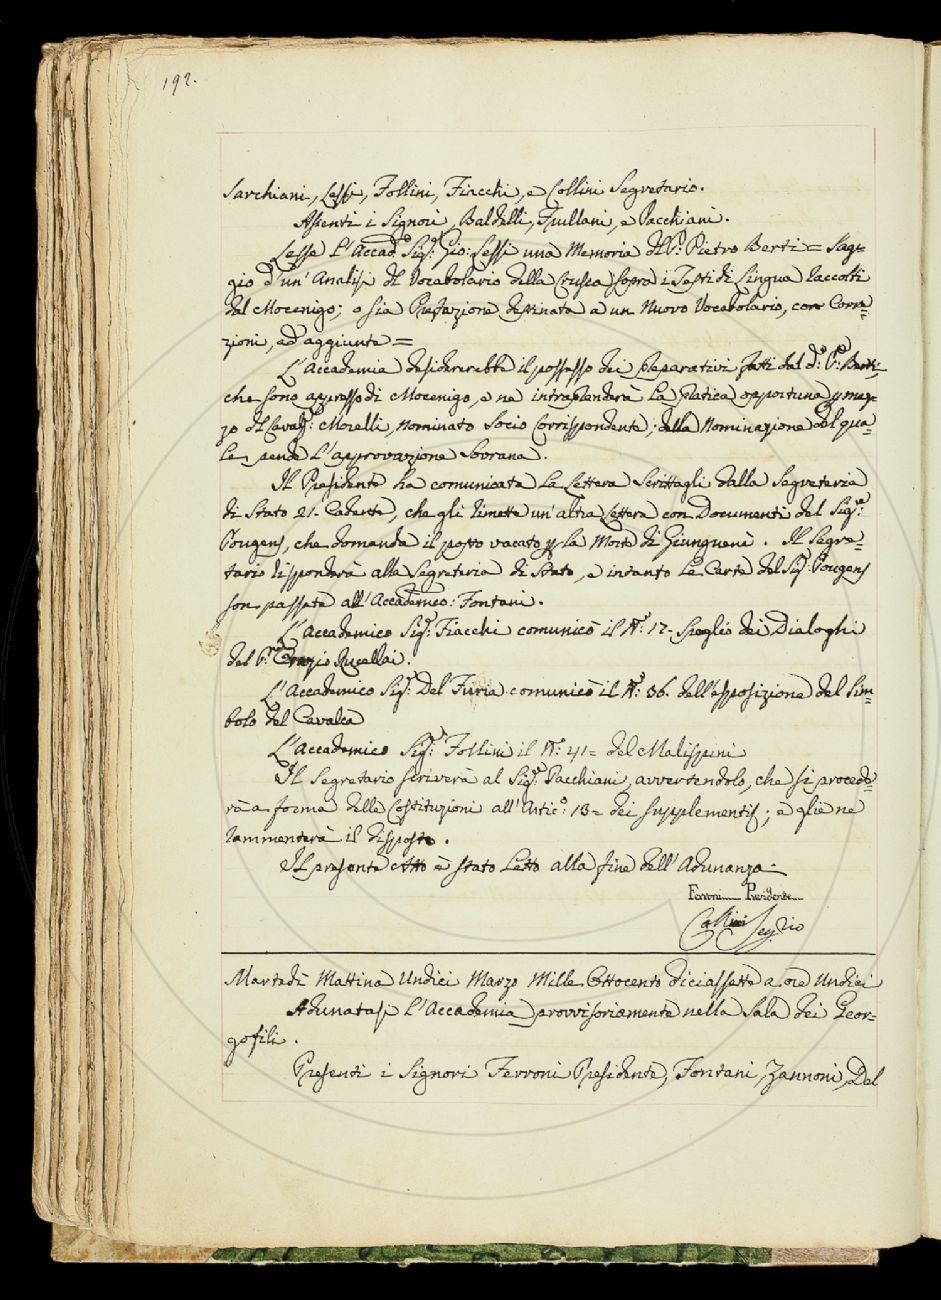 192.
Sarchiani, Lessi, Follini, Fiacchi, e Collini Segretario.
Assenti i Signori, Baldelli, Frullani, e Pacchiani.
Lesse l'Accad.º Sig.r Gio: Lessi una Memoria del P. Pietro Berti = Sag-
gio d'un'Analisi del Vocabolario della Crusca sopra i Testi di Lingua raccolti
dal Mocenigo; o sia Prefazione destinata a un Nuovo Vocabolario, con Corre=
zioni, ed aggiunte =
L'Accademia desidererebbe il possesso dei preparativi fatti dal d.º P.e Berti,
che sono appresso di Mocenigo, e ne intraprenderà la pratica opportuna p mez-
zo del Caval.r Morelli, nominato Socio Corrispondente; della Nominazione del qua=
le pende l'approvazione Sovrana.
Il Presidente ha comunicata la Lettera Scrittagli dalla Segreteria
di Stato 21. Cadente, che gli rimette un'altra Lettera con Documenti del Sig.r
Pougens, che domanda il posto vacato p la Morte di Ginguenè. Il Segre=
tario risponderà alla Segreteria di Stato, e intanto le Carte del Sig.r Pougens
son passate all'Accademico: Fontani.
L'Accademico Sig.r Fiacchi comunicò il N.º 17= Spoglio dei Dialoghi
del P.re Orazio Rucellai.
L'Accademico Sig.r Del Furia comunicò il N.º 36. dell'esposizione del Sim=
bolo del Cavalca
L'Accademico Sig.r Follini il N.º 41= del Malispini
Il Segretario scriverà al Sig.r Pacchiani, avvertendolo, che si procede=
rà a forma delle Costituzioni all'Artic.º 13= dei Supplementi; e gliene
rammenterà il disposto.
Il presente Atto è stato Letto alla fine dell'Adunanza=
Ferroni Presidente
Collini Seg.rio
Martedì Mattina Undici Marzo Mille Ottocento diciassette a ore Undici
Adunatasi l'Accademia provvisoriamente nella Sala dei Geor=
gofili.
Presenti i Signori Ferroni Presidente, Fontani, Zannoni, Del